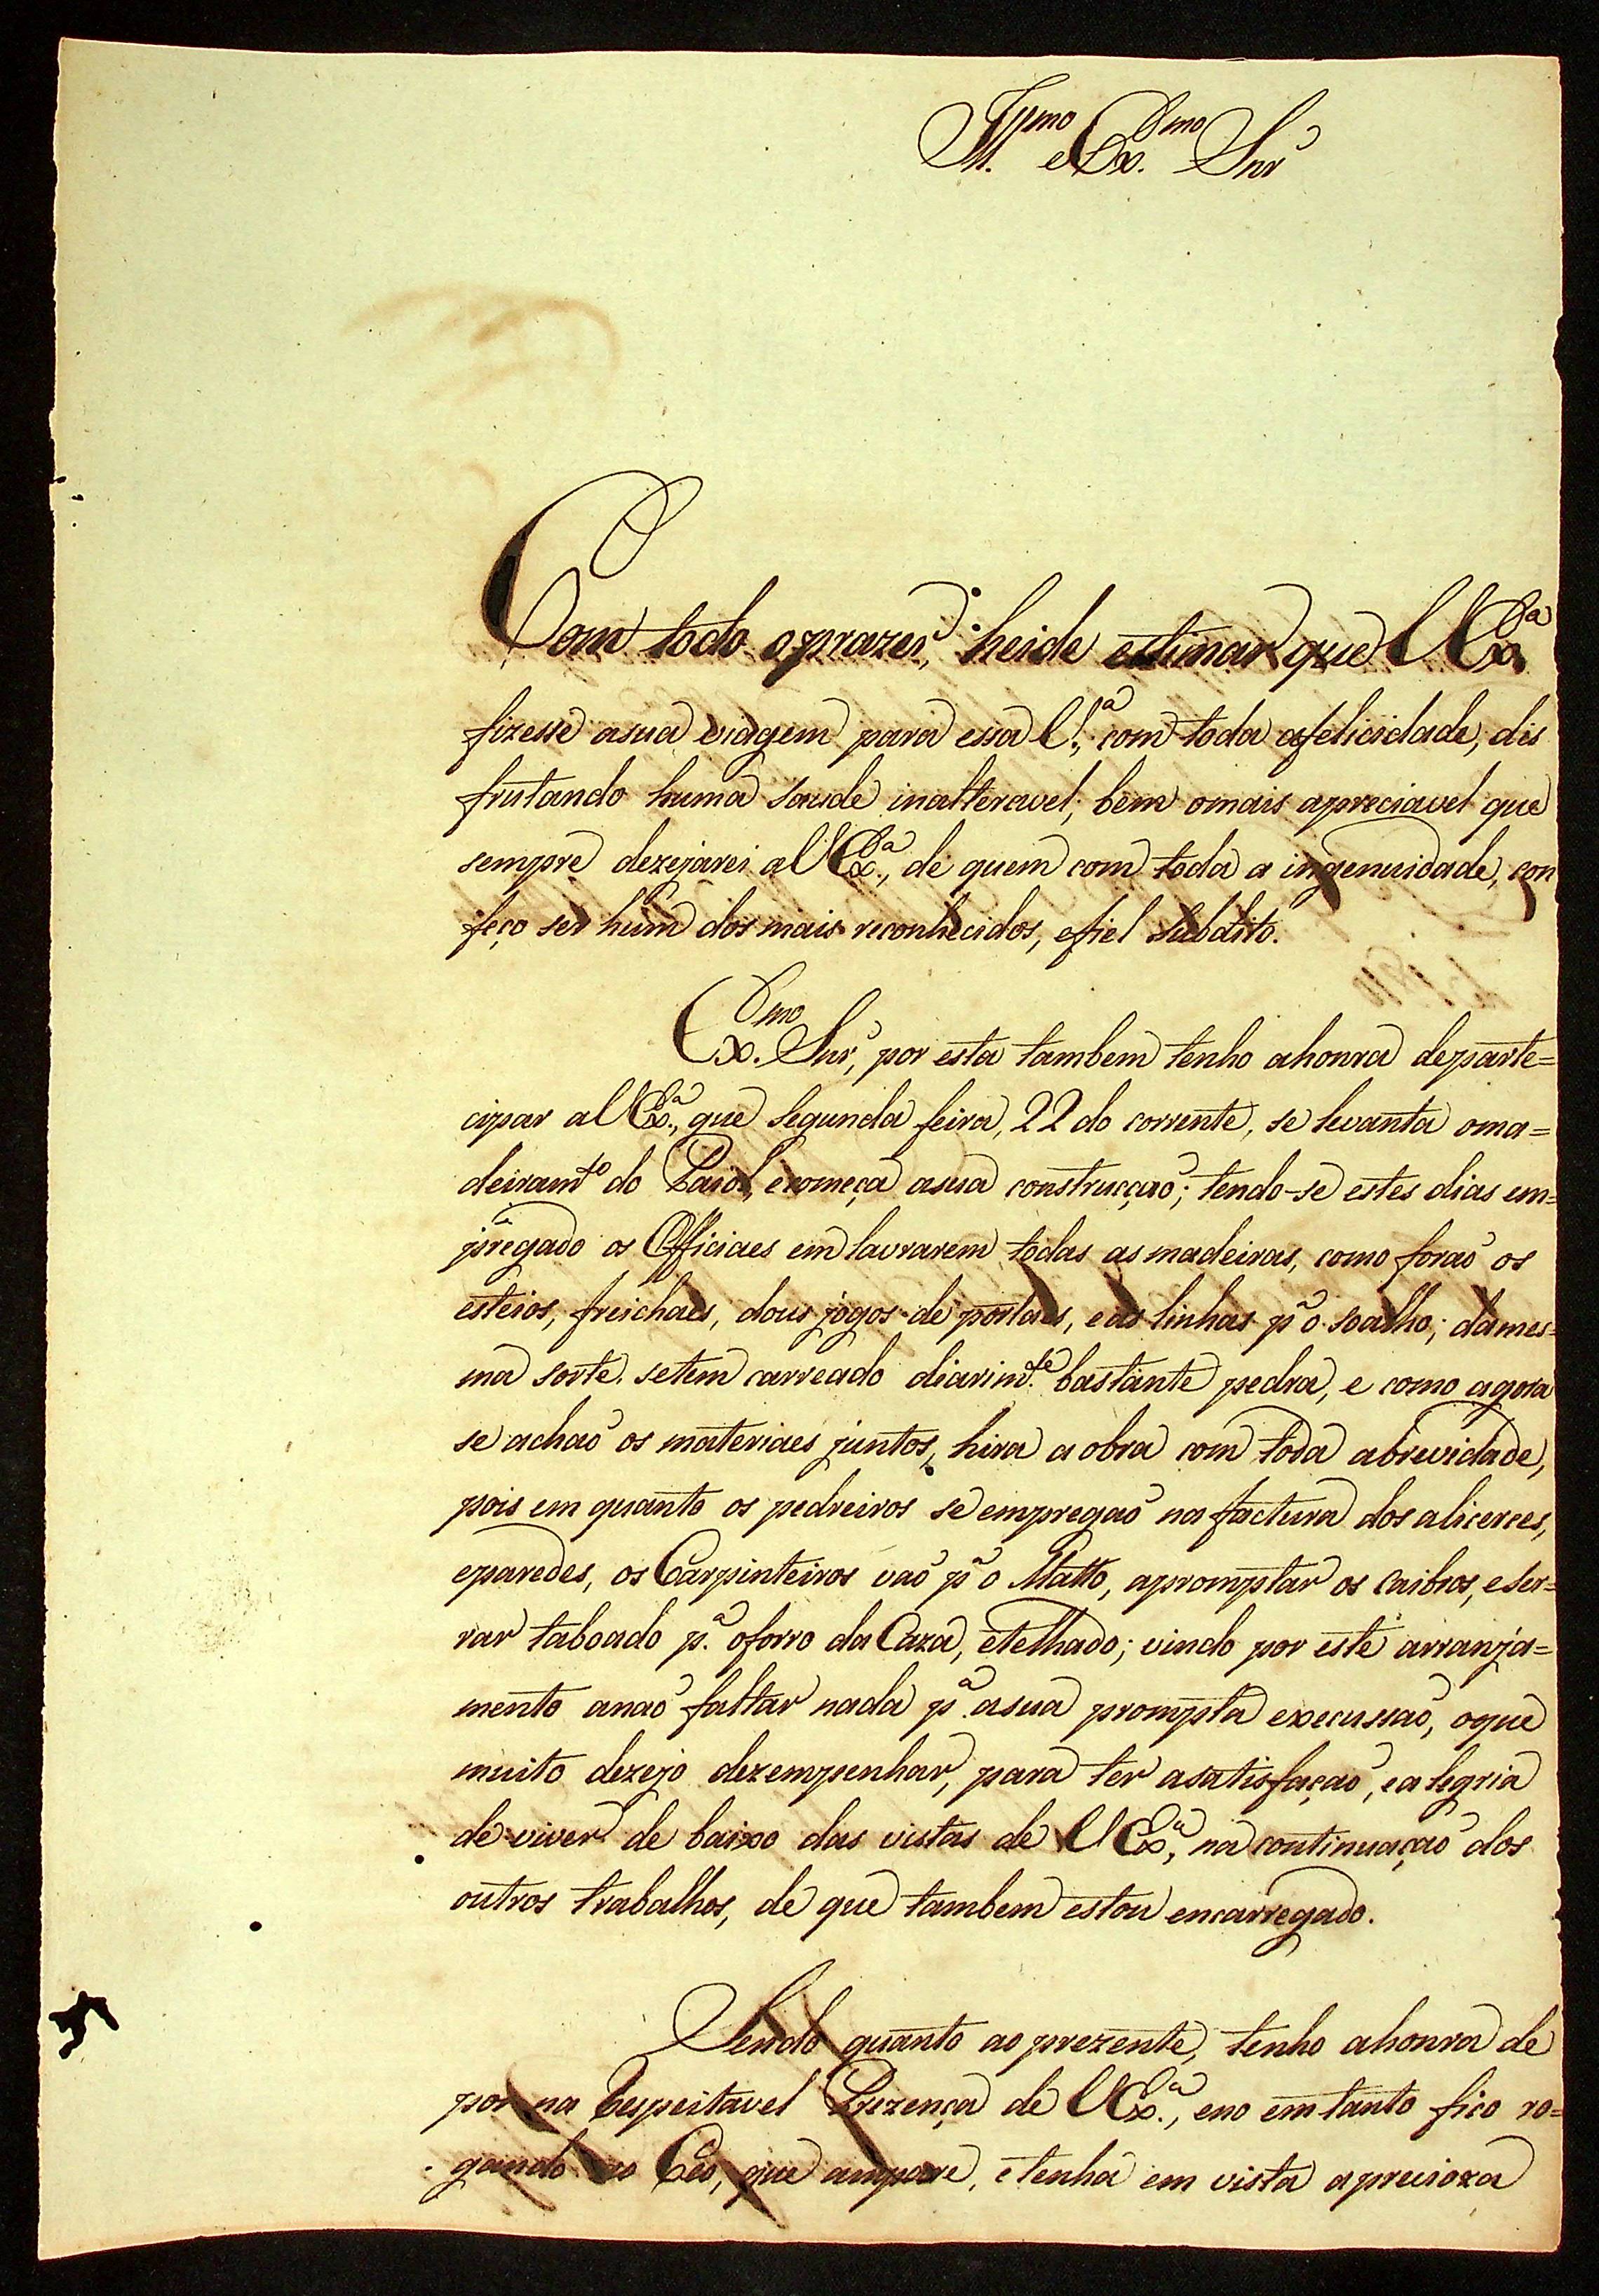 Ill.mo e Ex.mo Snr
Com todo o prazer, heide estimar que V Ex.a
fizesse asua viagem para essa V.a, com toda afelicidade, dis
frutando huma saude inalteravel, bem omais apreciavel que
sempre dezejarei aV Ex.a, de quem com toda a ingenuidade, con
feço ser hum dos mais reconhecidos, efiel subdito.
Ex.mo Snr, por esta tambem tenho ahonra departe=
cipar aV Ex.a, que segunda feira, 22 do corrente, se levanta oma=
deiram.to do Paiol, ecomeça asua construcçaõ; tendo-se estes dias em=
pregado os Officiaes em lavrarem todas as madeiras, como foraõ os
esteios, freichaes, dous jogos de portaes, eas linhas p.a o soalho; dames=
ma sorte setem carreado diarim.te bastante pedra, e como agora
se achaõ os materiaes juntos, hira a obra com toda abrevidade,
pois em quanto os pedreiros se empregaõ na factura dos alicerces,
eparedes, os Carpinteiros vaõ p.a o Matto, apromptar os Caibros, eser=
rar taboado p.a oforro da Caza, etelhado; vindo por este arranja=
mento anaõ faltar nada p.a asua prompta execussaõ, oque
muito dezejo dezempenhar, para ter asatisfaçaõ, ealegria
de viver de baixo das vistas de V Ex.a, na continuaçaõ dos
outros trabalhos, de que tambem estou encarregado.
Sendo quanto ao prezente, tenho ahonra de
por na Respeitavel Prezença de V Ex.a, eno emtanto fico ro=
gando ao Ceo, que ampare, etenha em vista aprecioza